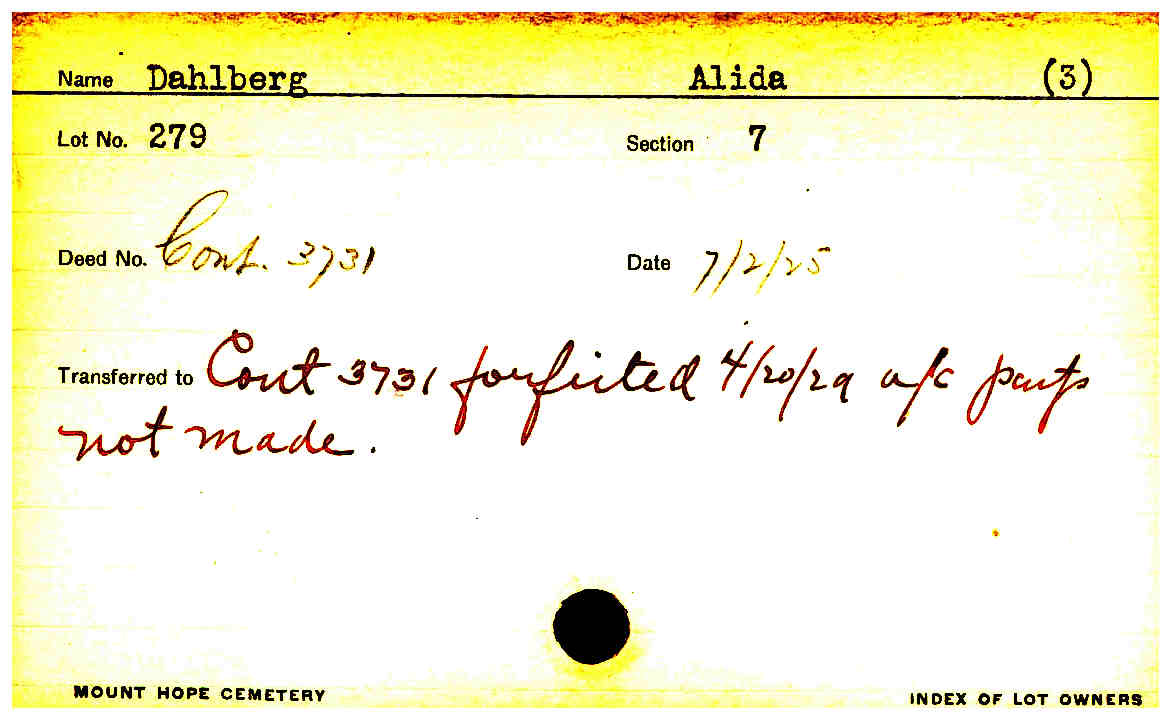 Name Dahlberg Alida (3)
Lot No. 279 Section 7
Deed No. Cont. 3731 Date 7/2/25
Transferred to Cont 3731 forfeited 4/20/29 a/c pants
not made.
MOUNT HOPE CEMETERY INDEX OF LOT OWNERS